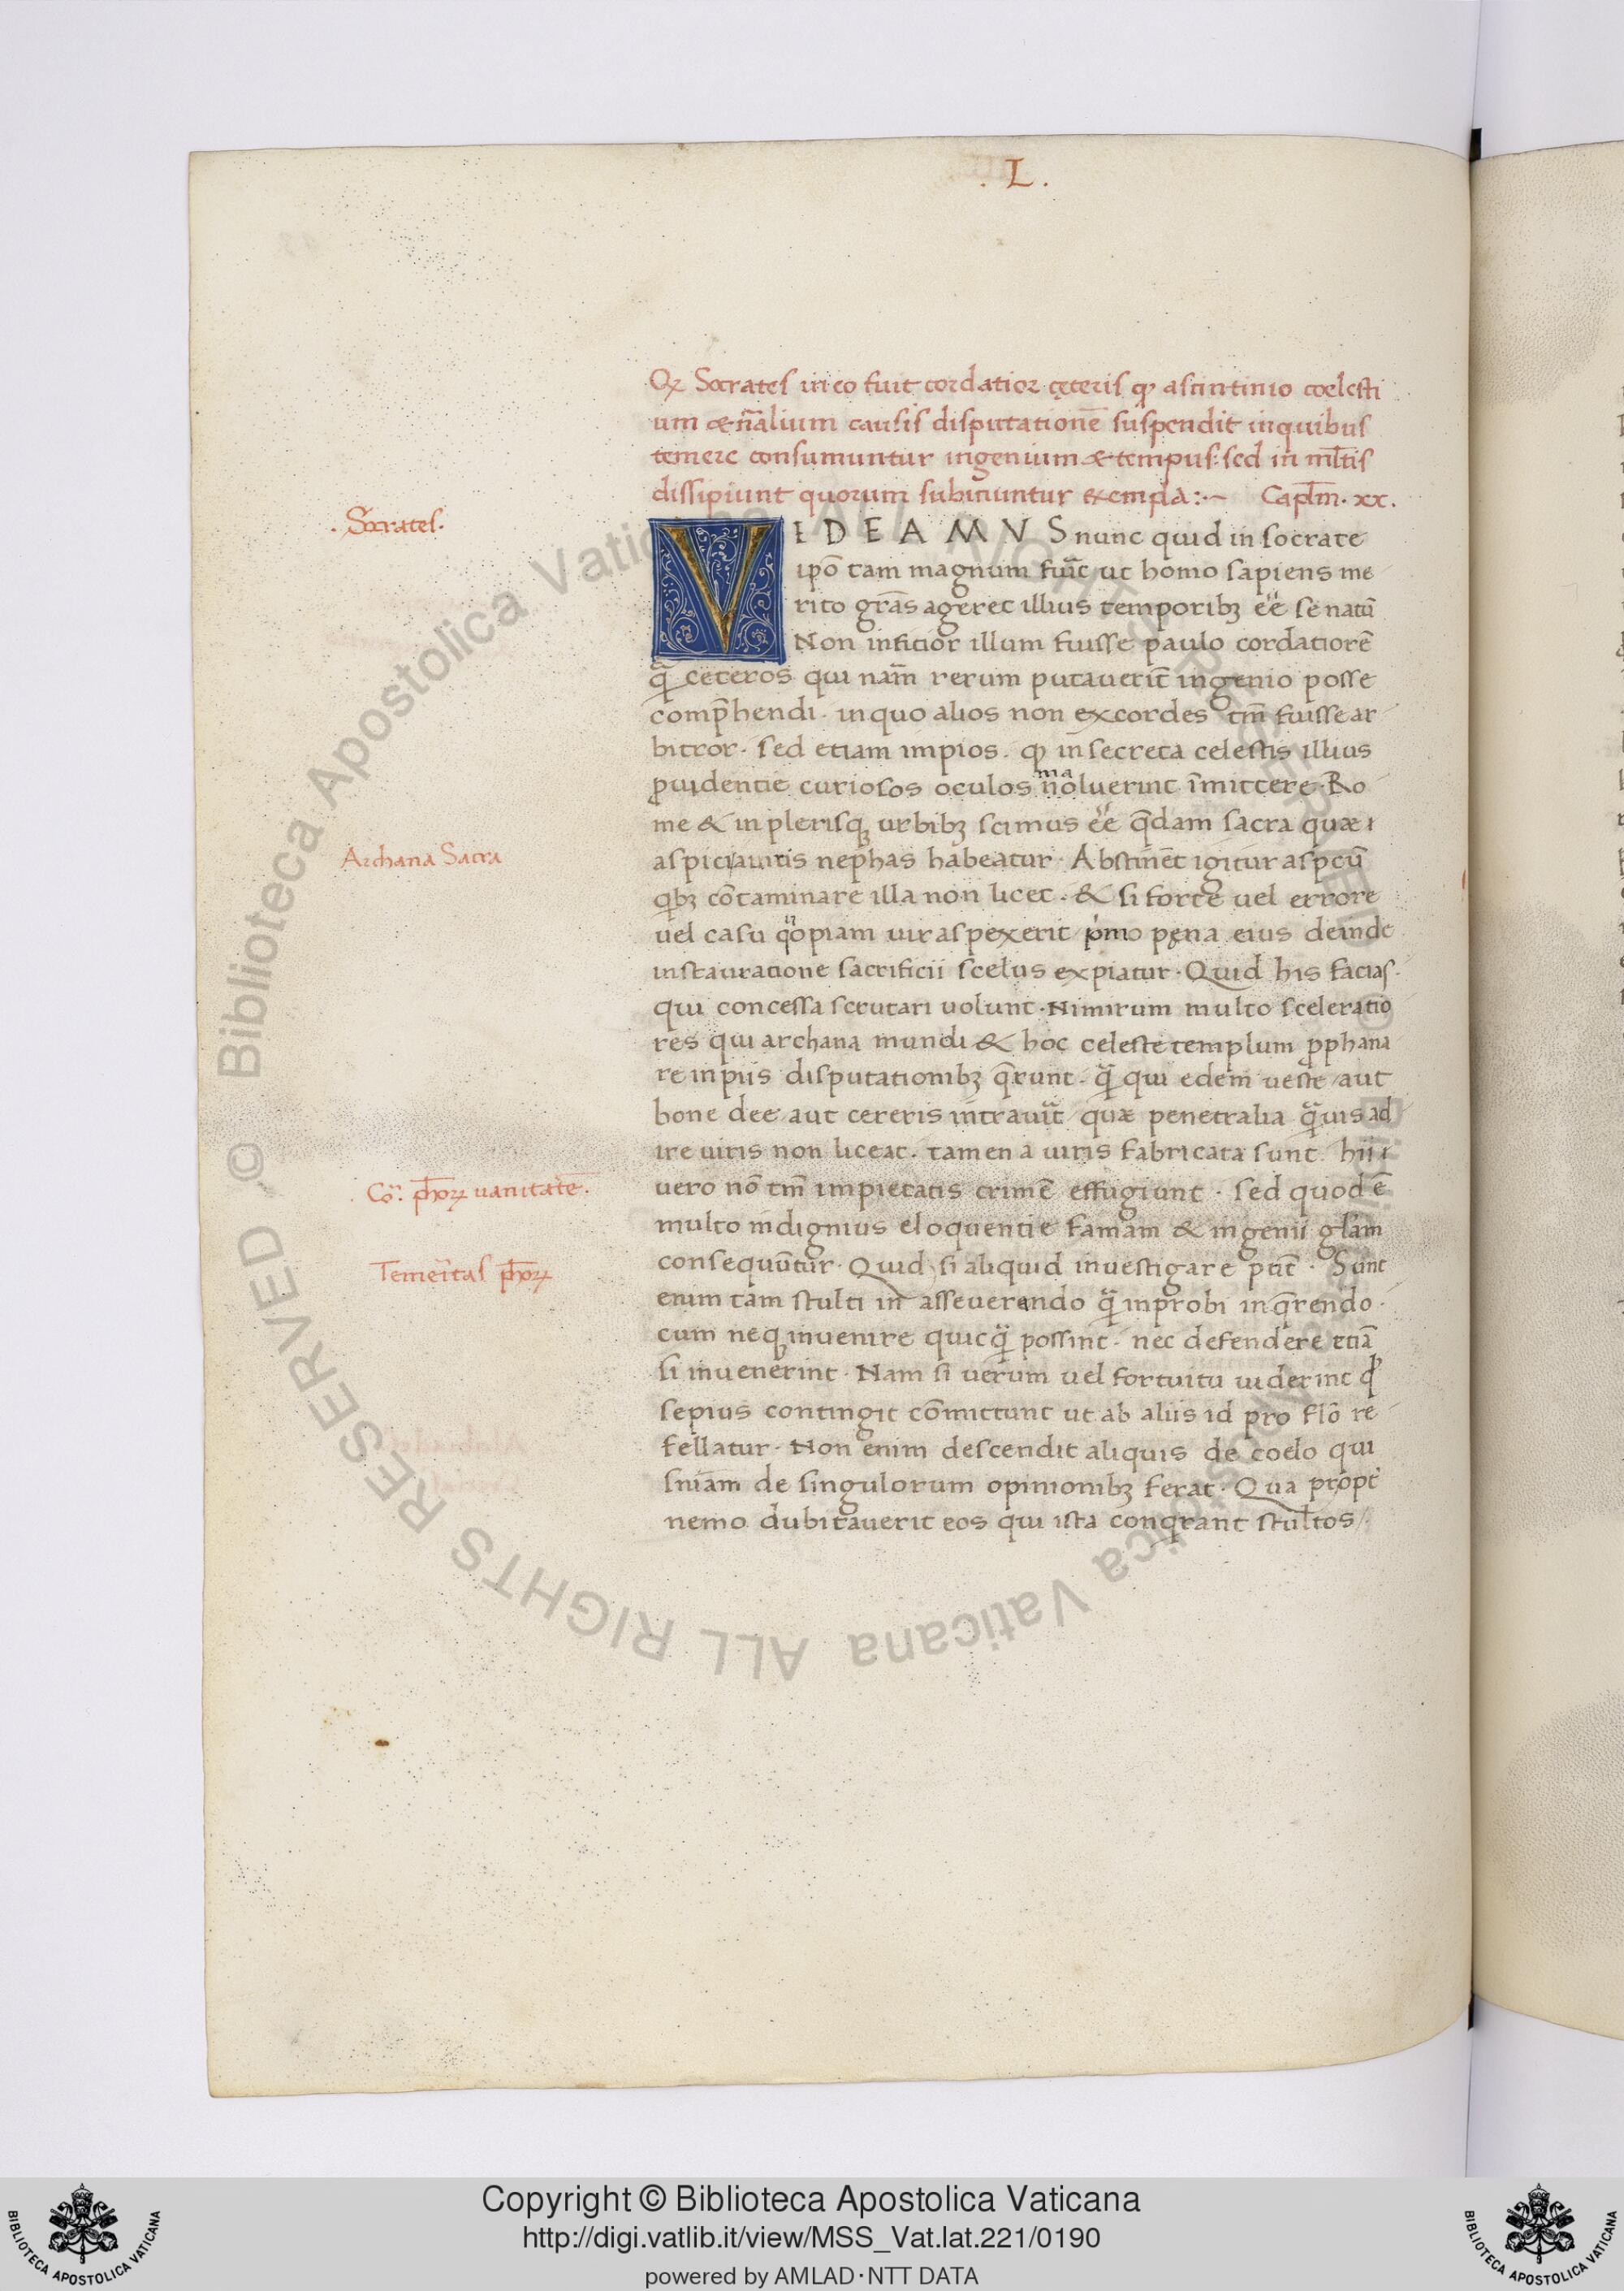 . L .
Qꝝ Socrates in eo fuit cordatior cęteris ꝙ astintinio coelesti
um & nãlium causis disputationẽ suspendit inquibus
temere consumuntur ingenium & tempus: sed in ml̃tis
dissipiunt quorum subiciuntur exempla :·~ Capl̃m . xx .
. Socrates .
VIDEAMVS nunc quid in socrate
ip̃o tam magnum fuit̃ ut homo sapiens me
rito grãs ageret illius temporibꝫ eẽ se natũ
Non inficior illum fuisse paulo cordatiorẽ
q̃ ceteros qui nam̃ rerum putauerit̃ ingenio posse
comp̃hendi . in quo alios non excordes tm̃ fuisse ar
bitror . sed etiam impios . ꝙ in secreta celestis illius
ꝓuidentie curiosos oculos ñoluerint ĩmittere . Ro
ma
me & in plerisqꝫ urbibꝫ scimus eẽ q̃dam sacra quæ
Archana Sacra
aspici auiris nephas habeatur . Abstinẽt igitur aspcũ
qͥbꝫ cõtaminare illa non licet . & si forte uel errore
uel casu q̃opiam uir aspexerit pͥmo pęna eius deinde
instauratione sacrificii scelus expiatur . Quid his facias .
qui concessa scrutari uolunt . Nimirum multo sceleratio
res qui archana mundi & hoc celeste templum ꝓphana
re inpiis disputationibꝫ q̃runt . q̃ qui edem ueste aut
bone dee aut cereris intrauit̃ quæ penetralia q̃uis ad
ire uiris non liceat . tamen a uiris fabricata sunt . hii
Cõ : ph̃oꝝ uanitatẽ .
uero nõ tm̃ impietatis crimẽ effugiunt . sed quod ẽ
multo indignius eloquentie famam & ingenii gl̃am
Temeritas ph̃oꝝ
consequũtur . Quid si aliquid inuestigare ptit̃ . Sunt
enim tam stulti in asseuerando q̃ inprobi in q̃rendo .
cum neqꝫ inuenire quicq̃ possint . nec defendere etiã
si inuenerint . Nam si uerum uel fortuitu uiderint qd̕
sepius contingit cõmittunt ut ab aliis id pro fl̃o re
fellatur . Non enim descendit aliquis de coelo qui
sniãm de singulorum opinionibꝫ ferat . Qua propt̕
nemo dubitauerit eos qui ista conq̃rant stultos
© Biblioteca Apostolica Vaticana ALL RIGHTS RESERVED
Copyright © Biblioteca Apostolica Vaticana
http://digi.vatlib.it/view/MSS_Vat.lat.221/0190
powered by AMLAD·NTT DATA
BIBLIOTECA APOSTOLICA VATICANA
BIBLIOTECA APOSTOLICA VATICANA